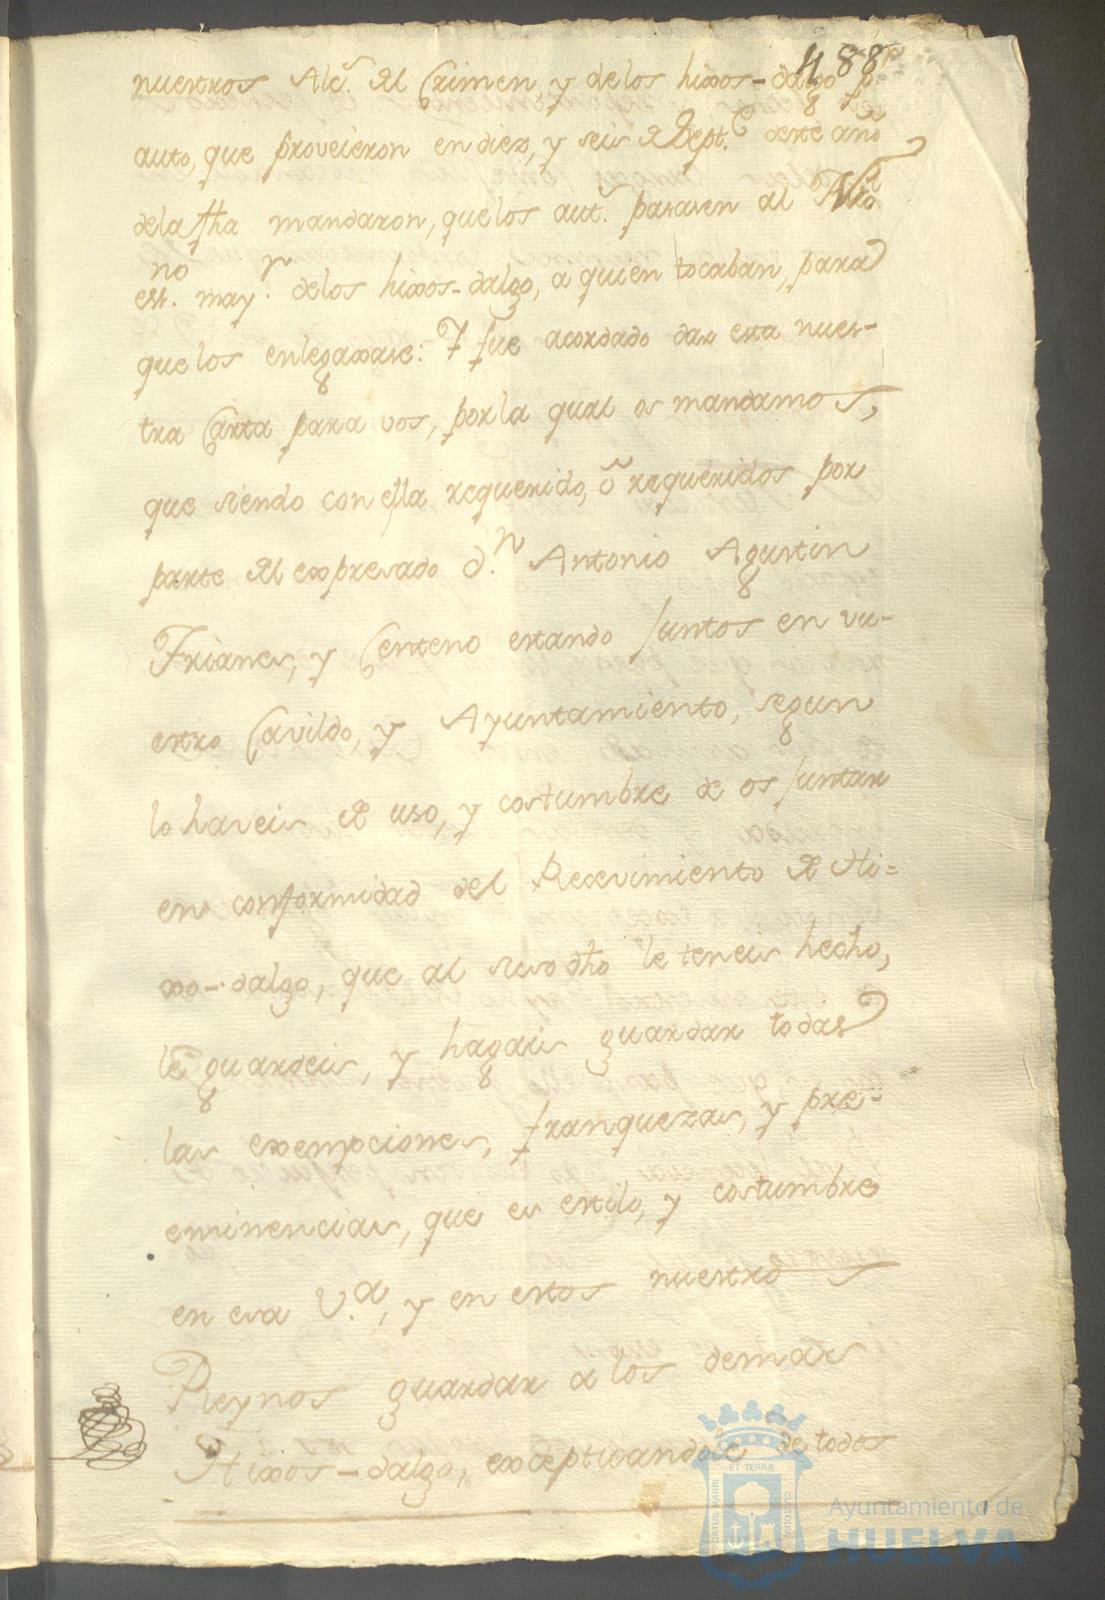 488
nuestros Alc.s del Crimen, y de los hixos-dalgo p.r
auto, que proveieron en diez, y seis de Sept.e deste año
de la fha mandaron, que los aut.s pasasen al Nro
essno. may.r de los hixos-dalgo, a quien tocaban, para
que los enlegaxase: Y fue acordado dar esta nues-
tra Carta para vos, por la qual os mandamos,
que siendo con ella requerido, ó requeridos por
parte del expresado d.n Antonio Agustin
Frianes, y Centeno estando Juntos en vu-
estro Cavildo, y Ayuntamiento, segun
lo haveis de uso, y costumbre de os Juntar
en conformidad del Recevimiento de Hi=
xo-dalgo, que al suso dho le teneis hecho,
le guardeis, y hagais guardar todas
las exempciones, franquezas, y pre-
eminencias, que es estilo, y costumbre
en esa V.a, y en estos nuestros
Reynos guardar a los demas
Hixos-dalgo, exceptuandole de todos
PORTUS MARIS
ET TERRÆ
CUSTODIA
Ayuntamiento de
HUELVA